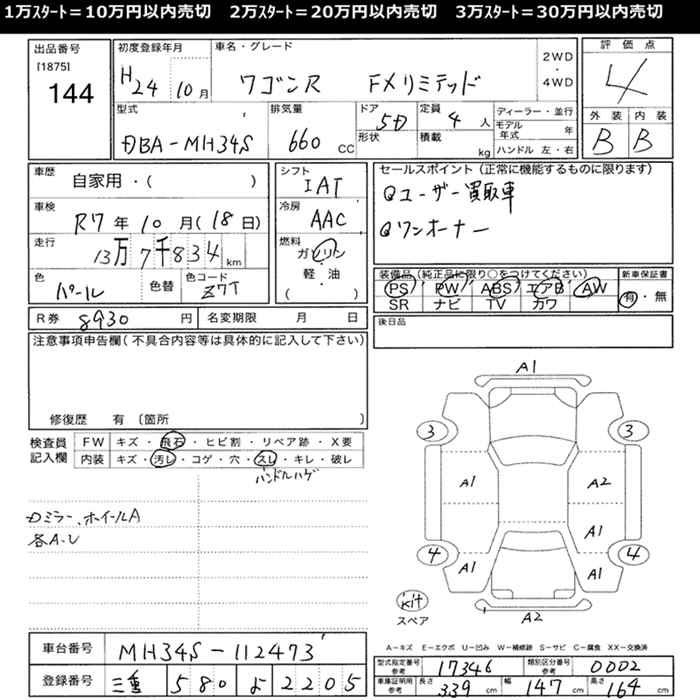 1万ｽﾀｰﾄ＝10万円以内売切　2万ｽﾀｰﾄ＝20万円以内売切　3万ｽﾀｰﾄ＝30万円以内売切
出品番号
[1875]
144
初度登録年月
H24 10月
車名・グレード
ワゴンR FXリミテッド
2WD
・
4WD
評価点
4
外装 内装
B B
型式
DBA-MH34S
排気量
660 CC
ドア
5D
形状
定員
4 人
積載
kg
ディーラー・並行
モデル年式 年
ハンドル 左・右
車歴
自家用・( )
車検
R7年10月(18日)
走行
13万7千834km
色
パール
色替
色コード
Z7T
シフト
IAT
冷房
AAC
燃料
ガソリン
・
軽・油
( )
セールスポイント(正常に機能するものに限ります)
ユーザー買取車
ワンオーナー
装備品(純正品に限り○をつけてください)
PS PW ABS エアB AW
SR ナビ TV カワ
新車保証書
有・無
R券 8930 円
名変期限 月 日
後日品
注意事項申告欄(不具合内容等は具体的に記入して下さい)
修復歴 有 〔箇所 〕
検査員
記入欄
FW キズ・飛石・ヒビ割・リペア跡・X要
内装 キズ・汚レ・コゲ・穴・スレ・キレ・破レ
ハンドルハゲ
ミラー、ホイールA
各A-U
A1
3 3
A1 A2
A1
4 4
A1 A1
Kit
スペア
A2
A-キズ E-エクボ U-凹み W-補修跡 S-サビ C-腐食 XX-交換済
車台番号 MH34S-112473
登録番号 三重 580 よ 2205
型式指定番号
参考
17346
類別区分番号
参考
0002
車庫証明用
参考
長さ 339 cm 幅 147 cm 高さ 164 cm